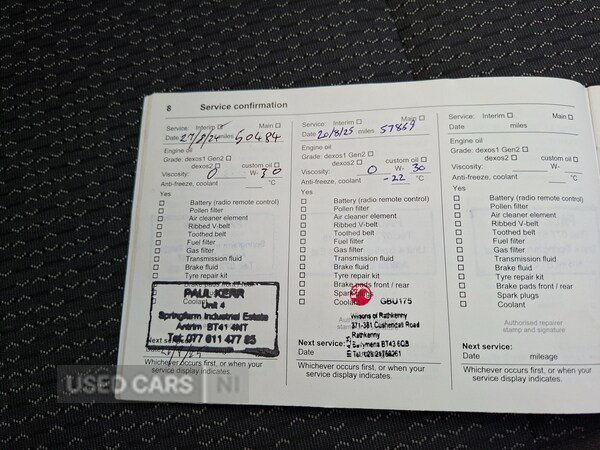 8 Service confirmation
Service: Interim ☐ Main ☐
Date 27/8/24 miles 50484
Engine oil
Grade: dexos1 Gen2 ☐
dexos2 ☐ custom oil ☐
Viscosity: 0 W- 30
Anti-freeze, coolant °C
Yes
☐ Battery (radio remote control)
☐ Pollen filter
☐ Air cleaner element
☐ Ribbed V-belt
☐ Toothed belt
☐ Fuel filter
☐ Gas filter
☐ Transmission fluid
☐ Brake fluid
☐ Tyre repair kit
☐ Brake pads front / rear
PAUL KERR
Unit 4
Springfarm Industrial Estate
Antrim BT41 4NT
Tel. 077 611 477 85
Whichever occurs first, or when your
service display indicates.
Service: Interim ☐ Main ☐
Date 20/8/25 miles 57869
Engine oil
Grade: dexos1 Gen2 ☐
dexos2 ☐ custom oil ☐
Viscosity: 0 W- 30
Anti-freeze, coolant -22 °C
Yes
☐ Battery (radio remote control)
☐ Pollen filter
☐ Air cleaner element
☐ Ribbed V-belt
☐ Toothed belt
☐ Fuel filter
☐ Gas filter
☐ Transmission fluid
☐ Brake fluid
☐ Tyre repair kit
☐ Brake pads front / rear
☐ Spark plugs
☐ Coolant GBU175
Wilsons of Rathkenny
371-381 Cushendall Road
Rathkenny
Ballymena BT43 6QB
Next service:
Date
Whichever occurs first, or when your
service display indicates.
Service: Interim ☐ Main ☐
Date miles
Engine oil
Grade: dexos1 Gen2 ☐
dexos2 ☐ custom oil ☐
Viscosity: W-
Anti-freeze, coolant °C
Yes
☐ Battery (radio remote control)
☐ Pollen filter
☐ Air cleaner element
☐ Ribbed V-belt
☐ Toothed belt
☐ Fuel filter
☐ Gas filter
☐ Transmission fluid
☐ Brake fluid
☐ Tyre repair kit
☐ Brake pads front / rear
☐ Spark plugs
☐ Coolant
Authorised repairer
stamp and signature
Next service:
Date mileage
Whichever occurs first, or when your
service display indicates.
USED CARS NI